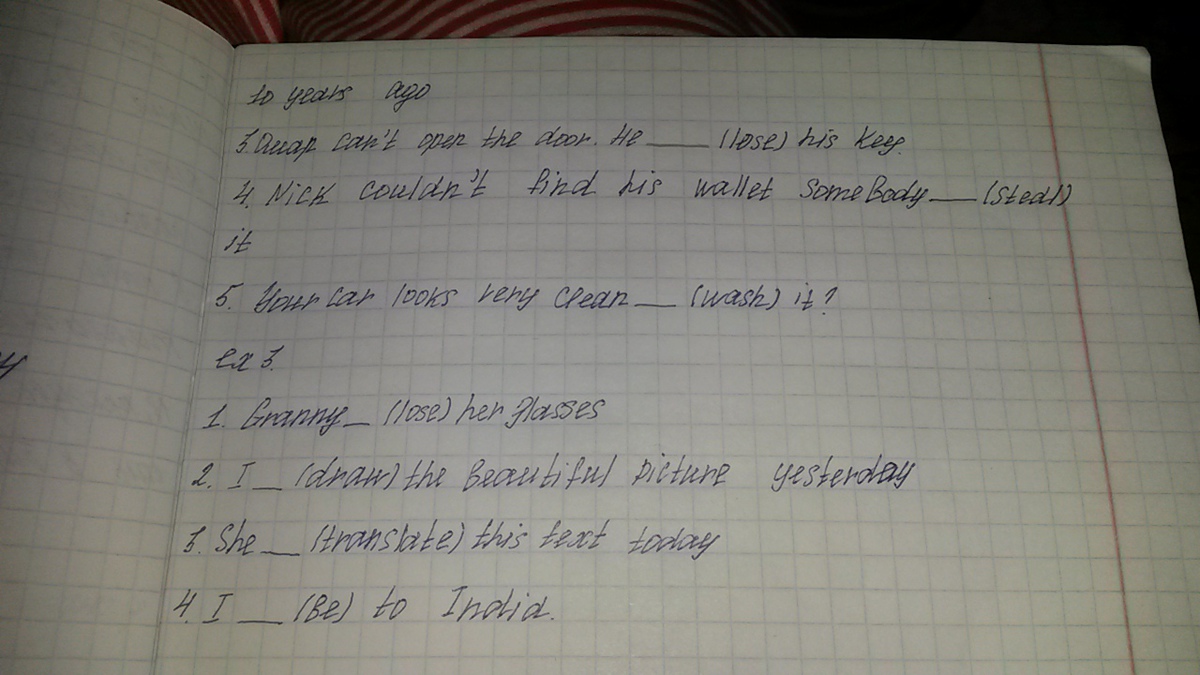 10 years ago
3. Омар can't open the door. He ___ (lose) his key.
4. Nick couldn't find his wallet somebody ___ (steal)
it
5. Your car looks very clean ___ (wash) it?
ex 3.
1. Granny _ (lose) her glasses
2. I _ (draw) the beautiful picture yesterday
3. She __ (translate) this text today
4. I __ (be) to India.